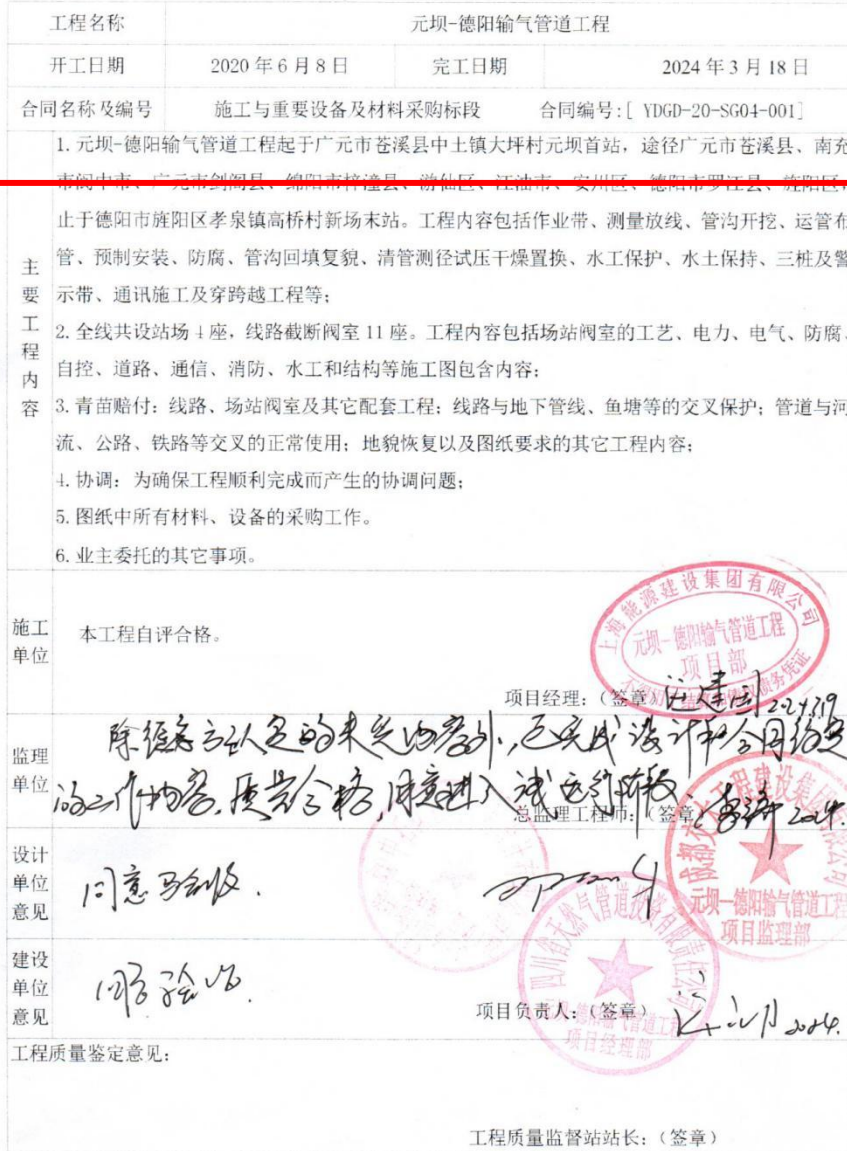 工程名称 元坝-德阳输气管道工程
开工日期 2020年6月8日 完工日期 2024年3月18日
合同名称及编号 施工与重要设备及材料采购标段 合同编号:[ YDGD-20-SG04-001]
主要工程内容
1. 元坝-德阳输气管道工程起于广元市苍溪县中土镇大坪村元坝首站，途径广元市苍溪县、南充
市阆中市、广元市剑阁县、绵阳市梓潼县、游仙区、江油市、安州区、德阳市罗江县、旌阳区，
止于德阳市旌阳区孝泉镇高桥村新场末站。工程内容包括作业带、测量放线、管沟开挖、运管布
管、预制安装、防腐、管沟回填复貌、清管测径试压干燥置换、水工保护、水土保持、三桩及警
示带、通讯施工及穿跨越工程等；
2. 全线共设站场4座，线路截断阀室11座。工程内容包括场站阀室的工艺、电力、电气、防腐、
自控、道路、通信、消防、水工和结构等施工图包含内容；
3. 青苗赔付：线路、场站阀室及其它配套工程；线路与地下管线、鱼塘等的交叉保护；管道与河
流、公路、铁路等交叉的正常使用；地貌恢复以及图纸要求的其它工程内容；
4. 协调：为确保工程顺利完成而产生的协调问题；
5. 图纸中所有材料、设备的采购工作。
6. 业主委托的其它事项。
施工单位 本工程自评合格。
上海能源建设集团有限公司
元坝-德阳输气管道工程
项目部
项目经理：（签章）
监理单位
除经各方认定的未完内容外，已完成设计和合同约定
的工作内容，质量合格，同意进入试运行阶段。
总监理工程师：（签章） 2024.
元坝-德阳输气管道工程
项目监理部
设计单位意见 同意验收.
建设单位意见 同意验收.
四川省天然气管道投资有限责任公司
元坝-德阳输气管道工程
项目经理部
项目负责人：（签章） 2024.
工程质量鉴定意见：
工程质量监督站站长：（签章）